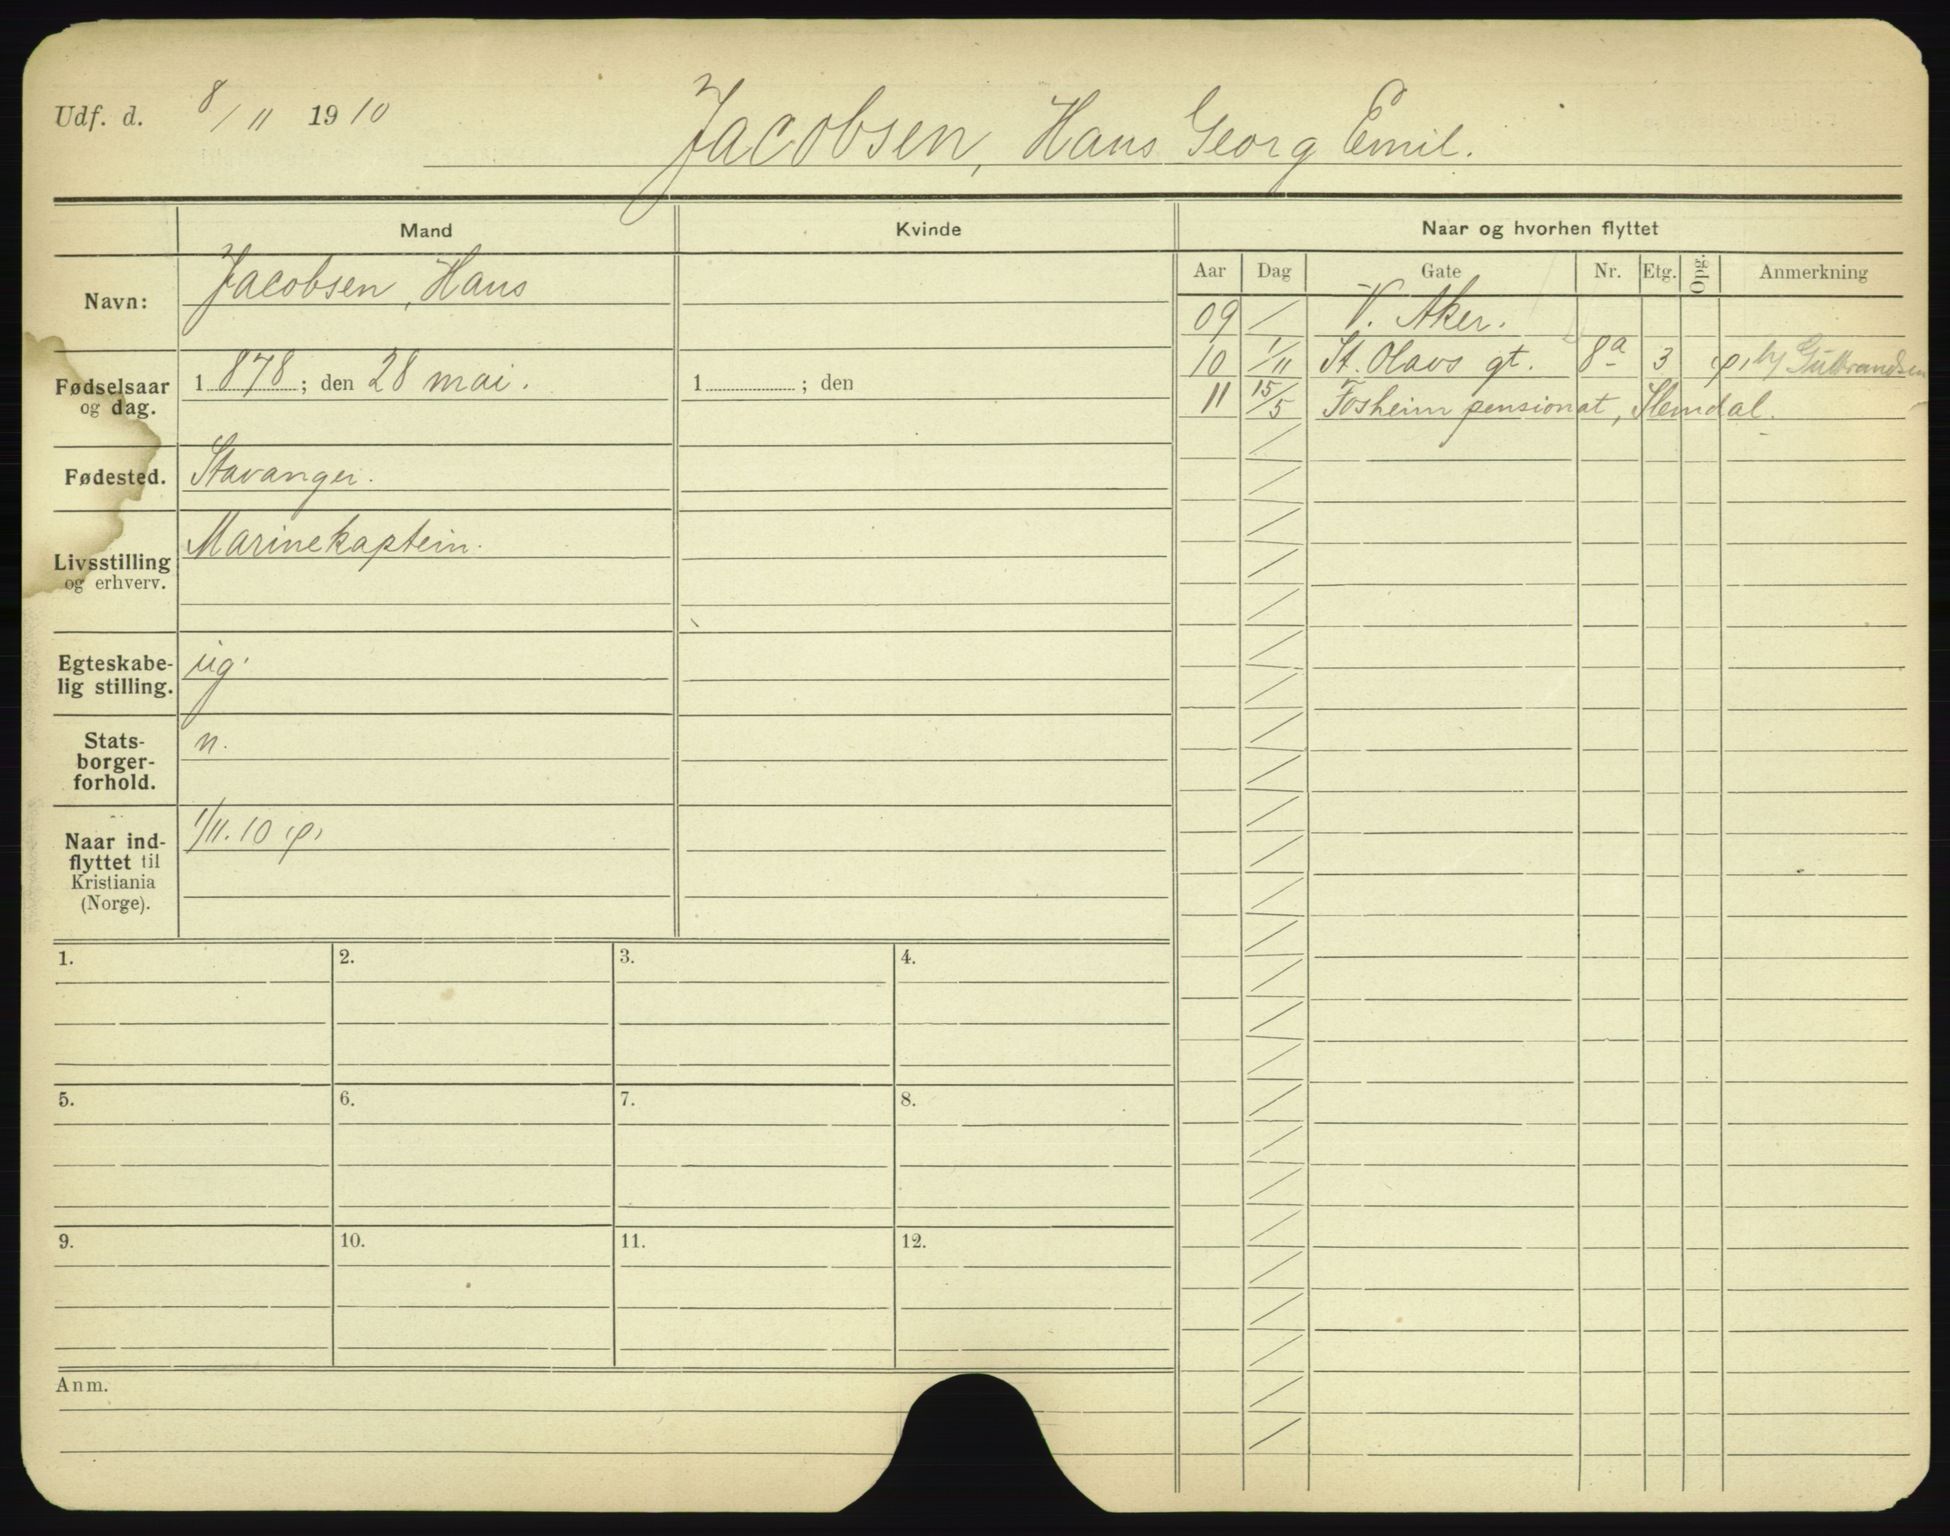 Udf. d. 8/11 1910
Jacobsen, Hans Georg Emil.
Mand
Kvinde
Naar og hvorhen flyttet
Navn:
Jacobsen, Hans
Fødselsaar og dag.
1878; den 28 mai.
1 ; den
Fødested.
Stavanger.
Livsstilling og erhverv.
Marinekaptein.
Egteskabe-
lig stilling.
ug.
Stats-
borger-
forhold.
n.
Naar ind-
flyttet til
Kristiania
(Norge).
1/11. 10
Aar Dag Gate Nr. Etg. Opg. Anmerkning
09 / V. Aker.
10 1/11 St. Olavs gt. 8a 3 Gulbrandsen
11 15/5 Fosheim pensionat, Slemdal.
1. 2. 3. 4.
5. 6. 7. 8.
9. 10. 11. 12.
Anm.